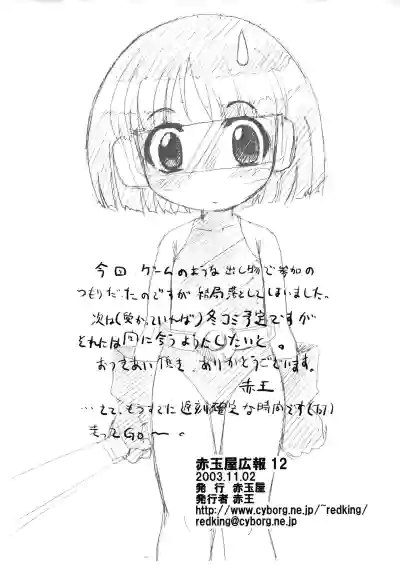 今回 ゲームのような出し物で参加の
つもりだったのですが 結局落としてしまいました。
次は(受かっていれば)冬コミ予定ですが
それには間に合うようにしたいと。
おつきあい頂き、ありがとうございます。
赤王
…さて、もうすでに遅刻確定な時間です(汗)
走ってGo!〜。
赤玉屋広報 12
2003.11.02
発 行 赤玉屋
発行者 赤王
http://www.cyborg.ne.jp/~redking/
redking@cyborg.ne.jp